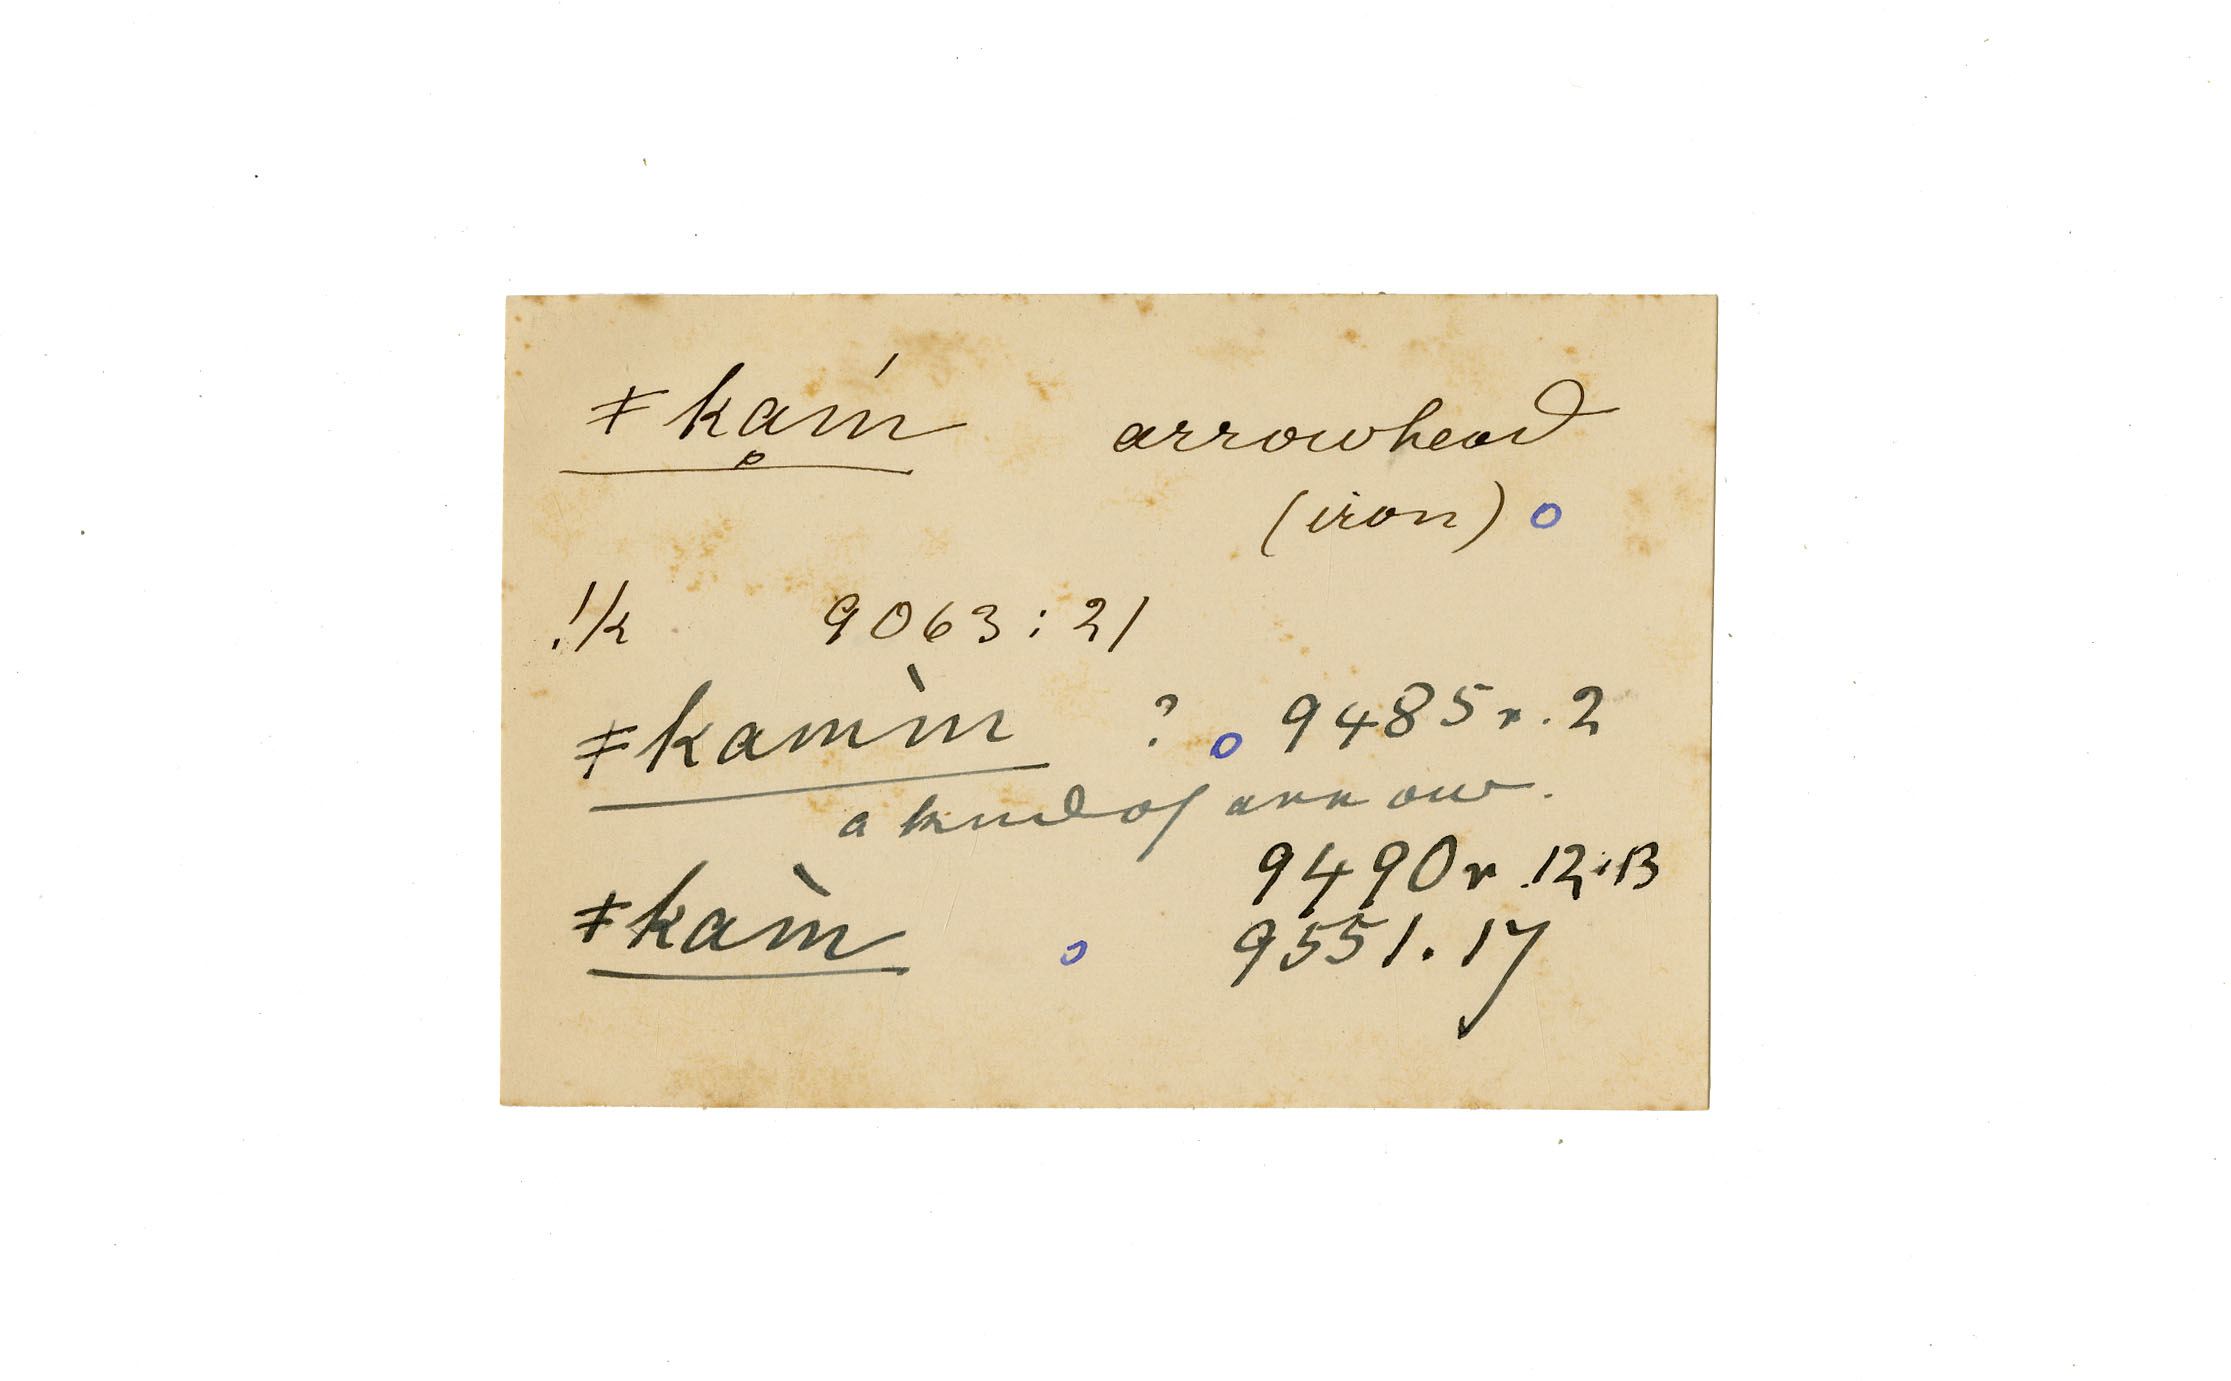 ǂkaḿ̥ arrowhead
(iron) o
!k 9063 : 21
ǂkamm̀ ? o 9485 r. 2
a kind of arrow.
9490 r. 12 + 13
ǂkam̀ o 9551. 17